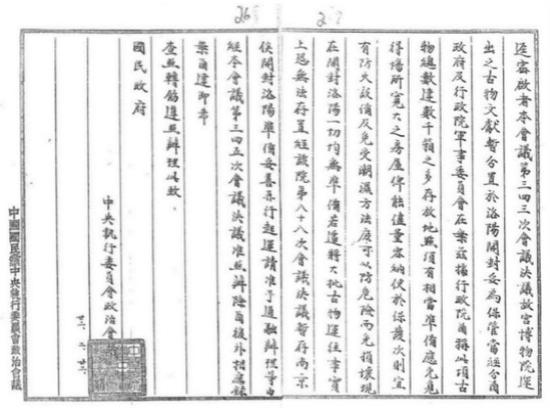 逕密啟者本會議第三四三次會議決議故宮博物院運
出之古物文獻暫分置於洛陽開封妥為保管當經分函
政府及行政院軍事委員會在案茲據行政院函稱以項古
物總數達數千箱之多存放地點須有相當準備應先覓
得場所寬大之房屋俾能儘量容納便於保護次則宜
有防火設備及免受潮濕方法庶可以防危險而免損壞現
在開封洛陽一切均無準備若遽轉大批古物運往事實
上恐無法存置經該院第八十八次會議決議暫存南京
俟開封洛陽準備妥善再行起運請准予通融辦理等由
經本會議第三四五次會議決議准照辦除函復外相應錄
案函達即希
查照轉飭遵照辦理此致
國民政府
中央執行委員會政治會
中國國民黨中央執行委員會政治會議